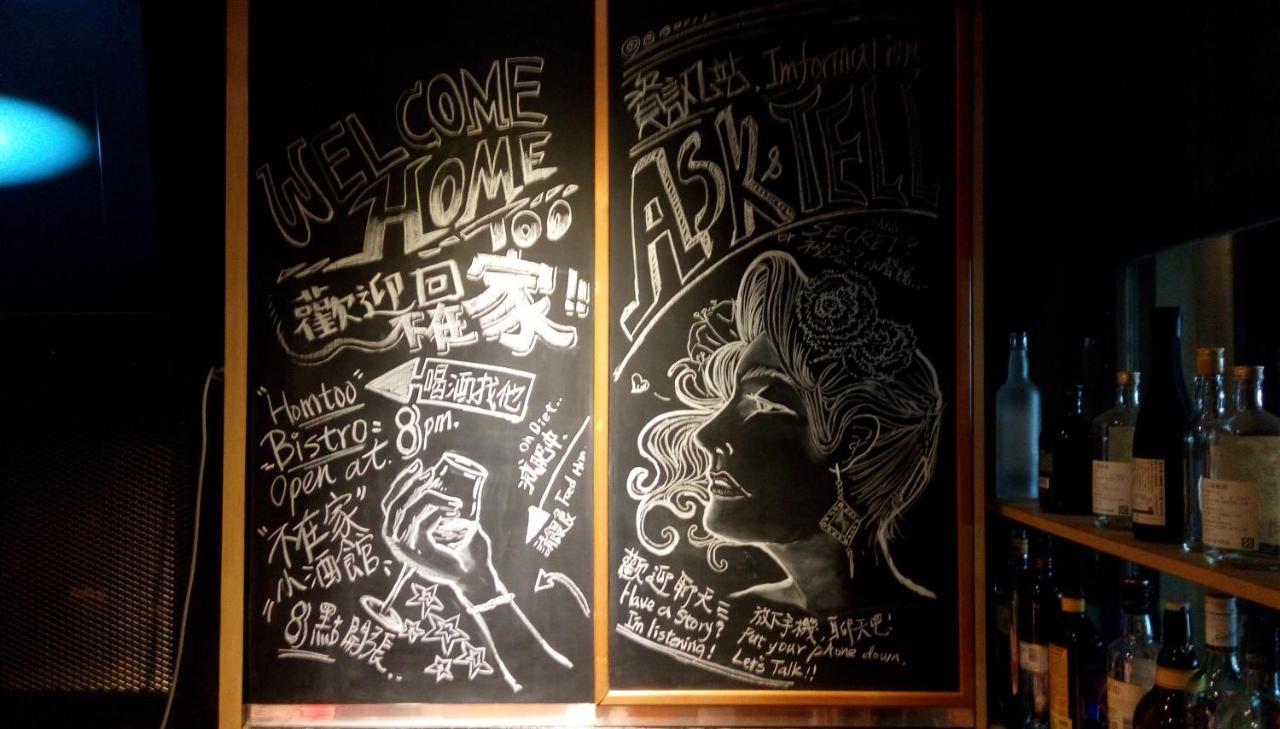 WELCOME
HOME
TOO
歡迎回
不在家!!
喝酒找他
"Homtoo"
"Bistro"
Open at 8pm.
"不在家"
"小酒館"
8點開張..
on Diet..
減肥中.
Feed Him
請餵食
資訊站.Imformation
ASK&TELL
or SECRET?
秘密?小聲說...
歡迎聊天
Have a story?
I'm listening!
放下手機,聊天吧!
Put your phone down.
Let's Talk!!